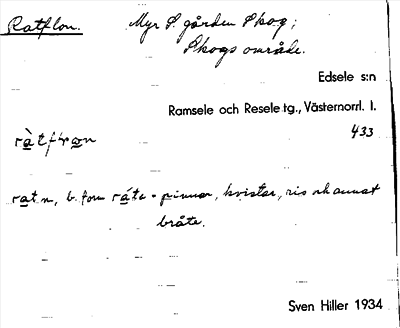 Ratflon. Myr S. gården Skog;
Skogs område.
Edsele s:n
Ramsele och Resele tg., Västernorrl. l.
433
ràtflon
rat n, b. form ráte = pinnar, kvistar, ris och annat
bråte.
Sven Hiller 1934